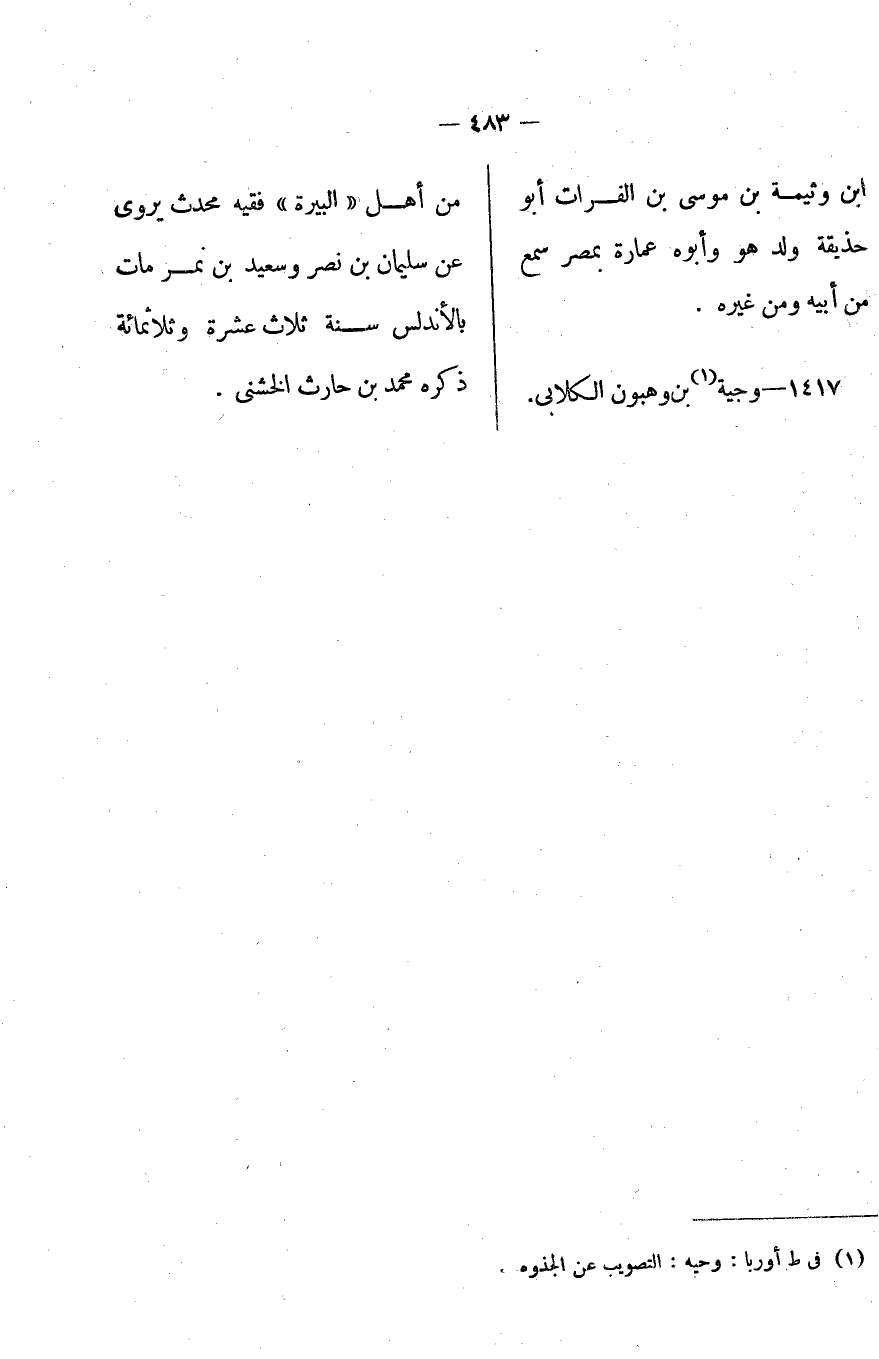 — ٤٨٣ —
ابن وثيمـة بن موسى بن الفـرات أبو
حذيقة ولد هو وأبوه عمارة بمصر سمع
من أبيه ومن غيره .
١٤١٧—وجية(١) بن وهبون الكلابى.
من أهـل « البيرة » فقيه محدث يروى
عن سليمان بن نصر وسعيد بن نمـر مات
بالأندلس سـنة ثلاث عشرة وثلاثمائة
ذكره محمد بن حارث الخشنى .
(١) فى ط أوربا : وحيه : التصويب عن الجذوه .